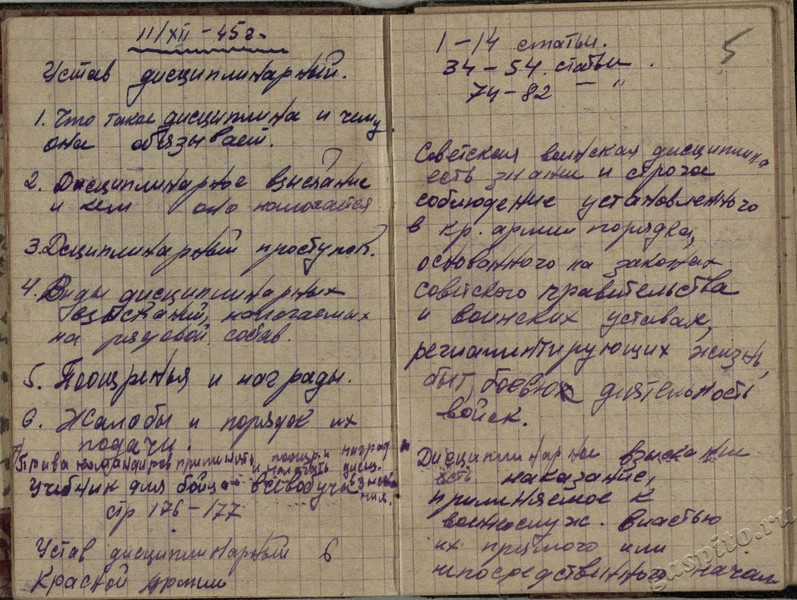 11/XII – 45г.
Устав дисциплинарный.
1. Что такое дисциплина и чему
она обязывает.
2. Дисциплинарное взыскание
и кем оно налогается
3. Дсциплинарный проступок.
4. Виды дисциплинарных
взысканий, налогаемых
на рядовой состав.
5. Поощренья и награды.
6. Жалобы и порядок их
подачи.
Права командиров применить поощр. и наград
и налогать дисц.
взыскания.
Учебник для бойца всевобуча
стр 176–177
Устав дисциплинарный 6
Красной Армии
5
1–14 статьи.
34–54. статьи.
74–82 — "
Советская воинская дисциплина
есть знание и строгое
соблюдение установленного
в Кр. армии порядка,
основанного на законах
советского правительства
и воинских уставах,
регламентирующих жизнь,
быт, боевую деятельность
войск.
Дисциплинарное взыскание
есть наказание,
применяемое к
военнослуж. властью
их прямого или
непосредственного начал
gaspito.ru